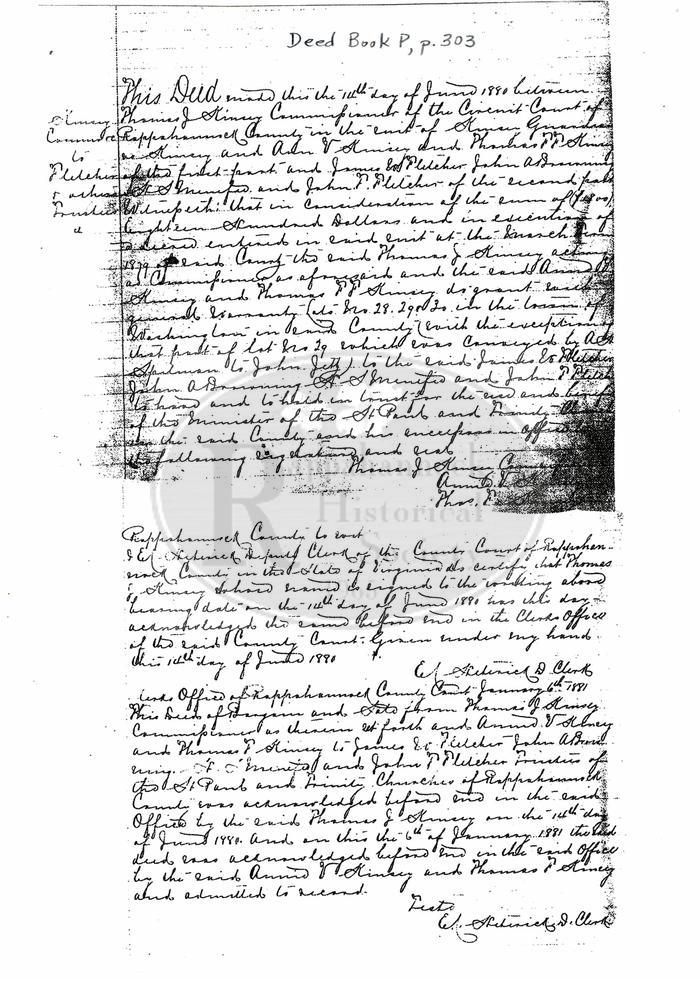 Deed Book P, p. 303
This Deed made this the 14th day of June 1880 between
Thomas J Kinsey Commissioner of the Circuit Court of
Kinsey
Commissioner
Rappahannock County in the suit of Kinsey Guardian
to
vs Kinsey and Ann V Kinsey and Thomas F Kinsey
Fletcher
of the first part and James W Fletcher John A Browning
& others
S Menefee and John F Fletcher of the second part
Trustees
Witnesseth: that in consideration of the sum of
Eighteen Hundred Dollars and in execution of
a decree entered in said suit at the March Term
1879 of said Court the said Thomas J Kinsey acting
as Commissioner as aforesaid and the said Annie V
Kinsey and Thomas F Kinsey do grant with
general warranty lots Nos 28. 29 & 30 in the town of
Washington in said County (with the exception of
that part of lot No 29 which was conveyed by
Spilman to John Jett) to the said James W Fletcher
John A Browning S Menefee and John F Fletcher
to have and to hold in trust for the use and benefit
of the Minister of the St Paul and Trinity
in the said County and his successors in office
the following signatures and seal
Thomas J Kinsey
Annie V
Thos. F
Rappahannock County to wit
I Deputy Clerk of the County Court of Rappahan-
nock County in the State of Virginia do certify that Thomas
J Kinsey whose name is signed to the writing above
bearing date on the 14th day of June 1880 has this day
acknowledged the same before me in the Clerks Office
of the said County Court. Given under my hand
this 14th day of June 1880
D. Clerk
Clerks Office of Rappahannock County Court January 6th 1881
This Deed of Bargain and Sale from Thomas J Kinsey
Commissioner as therein set forth and Annie V Kinsey
and Thomas F Kinsey to James W Fletcher John A Brow-
ning. S Menefee and John F Fletcher Trustees of
the St Paul and Trinity Churches of Rappahannock
County was acknowledged before me in the said
Office by the said Thomas J Kinsey on the 14th day
of June 1880. And on this the 6th of January 1881 the said
deed was acknowledged before me in the said Office
by the said Annie V Kinsey and Thomas F Kinsey
and admitted to record.
Teste
D. Clerk
Rappahannock
Historical
Society